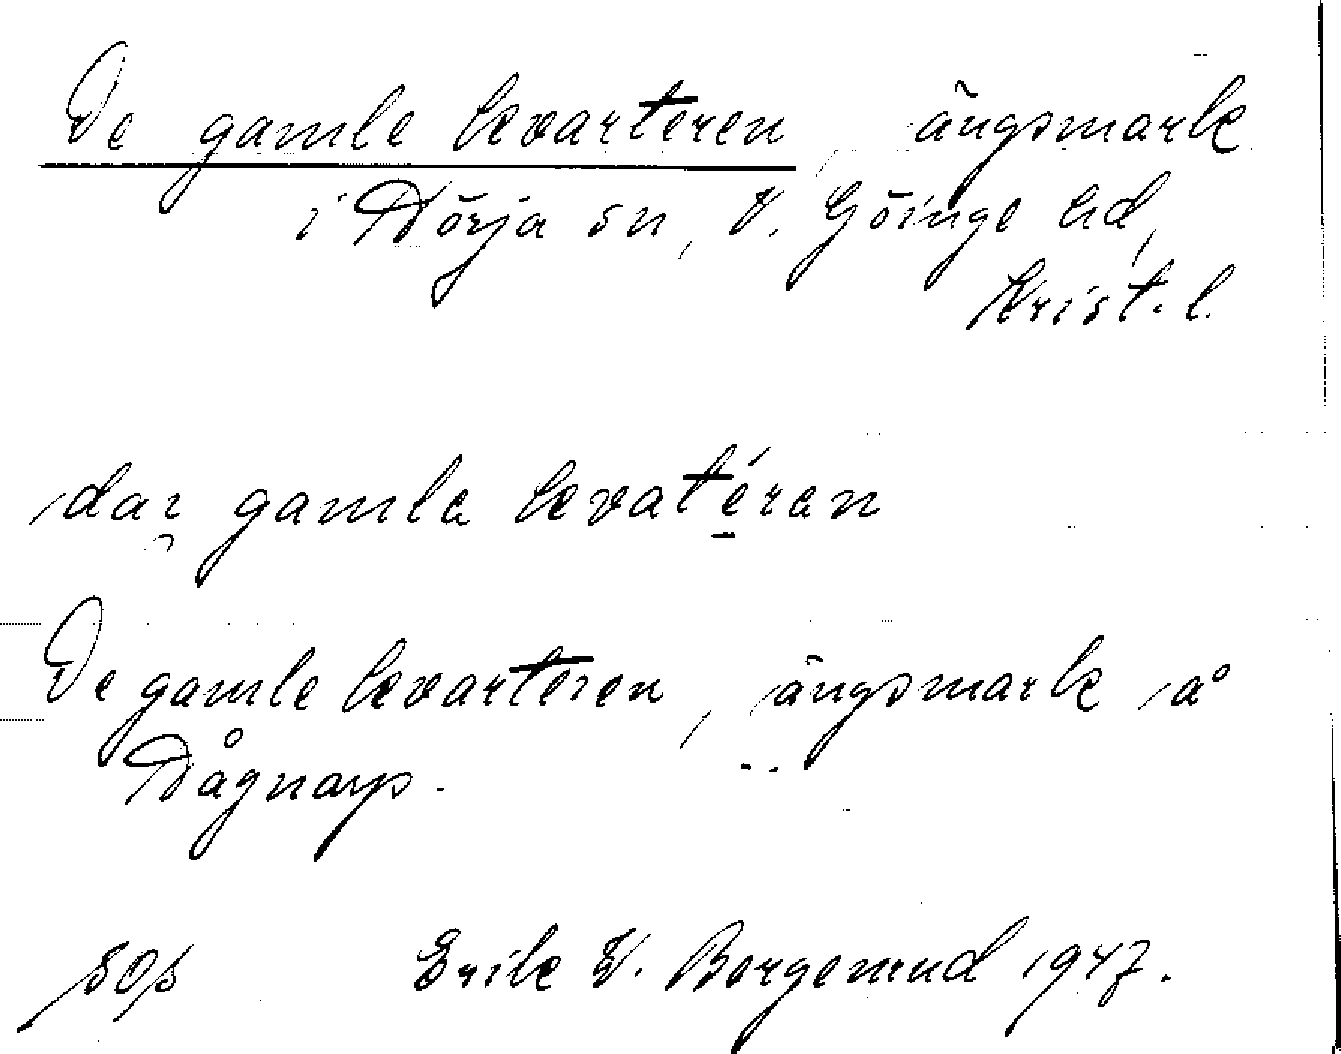 De gamle kvarteren, ängsmark
i Hörja sn, V. Göinge hd,
Krist. l.
dar gamla kvatéran
De gamle kvarteren, ängsmark å
Hågnarp.
Erik 1947.